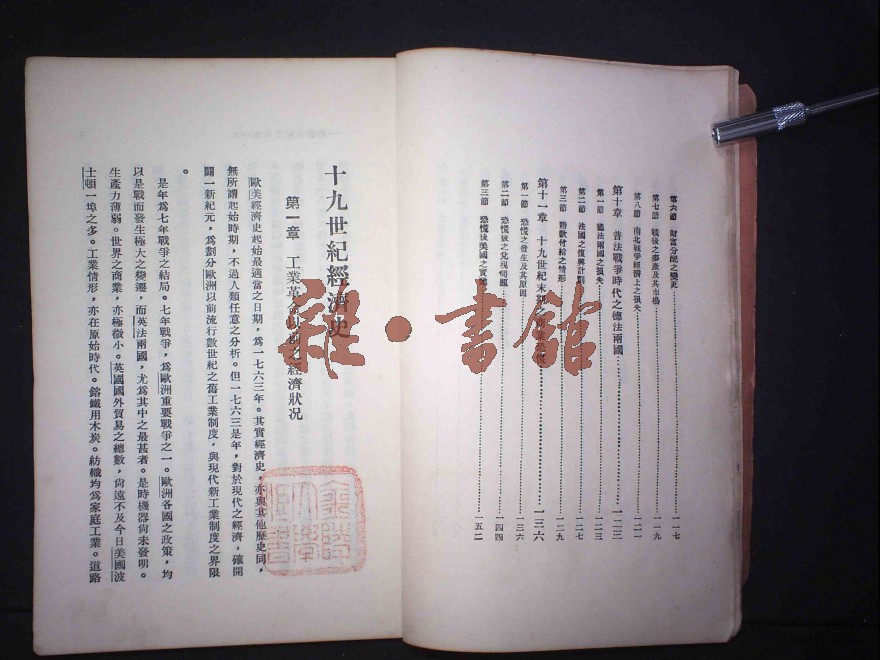 第六節 財富分配之變更 一一七
第七節 戰後之事產及其市場 一一九
第八節 南北戰爭經濟上之損失 一二一
第十章 普法戰爭時代之德法兩國 一二三
第一節 德法兩國之損失 一二三
第二節 法國之復興計劃 一二七
第三節 賠款付給之情形 一二九
第十一章 十九世紀末期之 一三六
第一節 恐慌之發生及其原因 一三六
第二節 恐慌後之兌現問題 一四四
第三節 恐慌後美國之實 一五二
雜·書館
十九世紀經濟史
第一章 工業革命以前之經濟狀況
歐美經濟史起始最適當之日期,爲一七六三年。其實經濟史,亦與其他歷史同,
無所謂起始時期,不過人類任意之分析。但一七六三是年,對於現代之經濟,確開
闢一新紀元,爲劃分歐洲以前流行數世紀之舊工業制度,與現代新工業制度之界限
。
是年爲七年戰爭之結局。七年戰爭,爲歐洲重要戰爭之一。歐洲各國之政策,均
以是戰而發生極大之變遷,而英法兩國,尤爲其中之最甚者。是時機器尙未發明。
生產力薄弱。世界之商業,亦極微小。英國國外貿易之總數,尙遠不及今日美國波
士頓一埠之多。工業情形,亦在原始時代。鎔鐵用木炭。紡織均爲家庭工業。道路